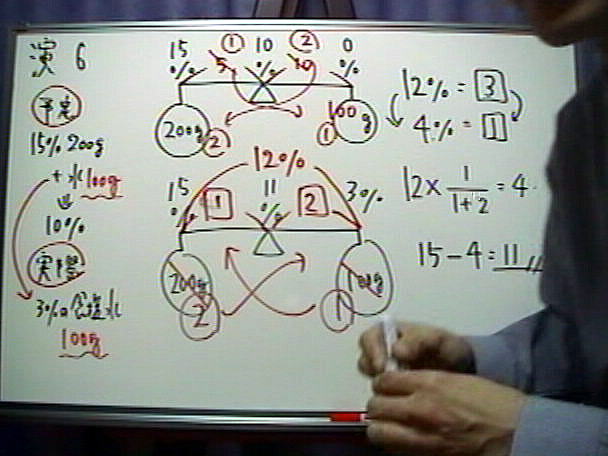 演 6
予定
15% 200g
+ 水 100g
⇓
10%
実際
3%の食塩水
100g
15 ① 10 ② 0
% 5 % 10 %
200g ② 100g ①
12%
15 11 3%
% 1 % 2
200g 2 100g 1
12% = 3
4% = 1
12 × 1/(1+2) = 4
15 − 4 = 11